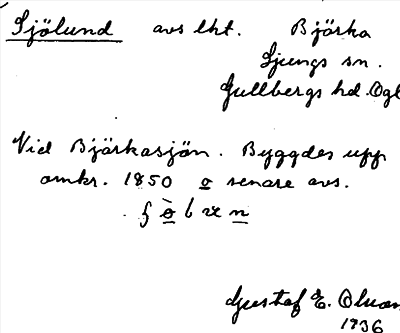 Sjölund avs lht. Bjärka
Ljungs sn.
Gullbergs hd. Ögl
Vid Bjärkasjön. Byggdes upp
omkr. 1850 o senare avs.
Gustaf E. Olsson
1936